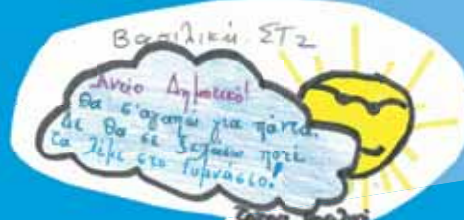 Βασιλική ΣΤ2
Αντίο Δημοτικό!
Θα σ'αγαπώ για πάντα.
Δε θα σε ξεχάσω ποτέ.
Τα λέμε στο Γυμνάσιο!